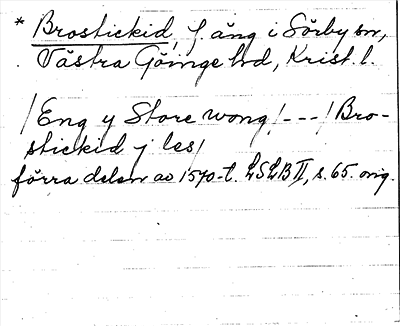 * Brostickid, f. äng i Sörby sn,
Västra Göinge hd, Krist. l.
/Eng y Store wong/---/Bro-
stickid j les/
förra delen av 1570-t. LSLB II, s. 65. orig.